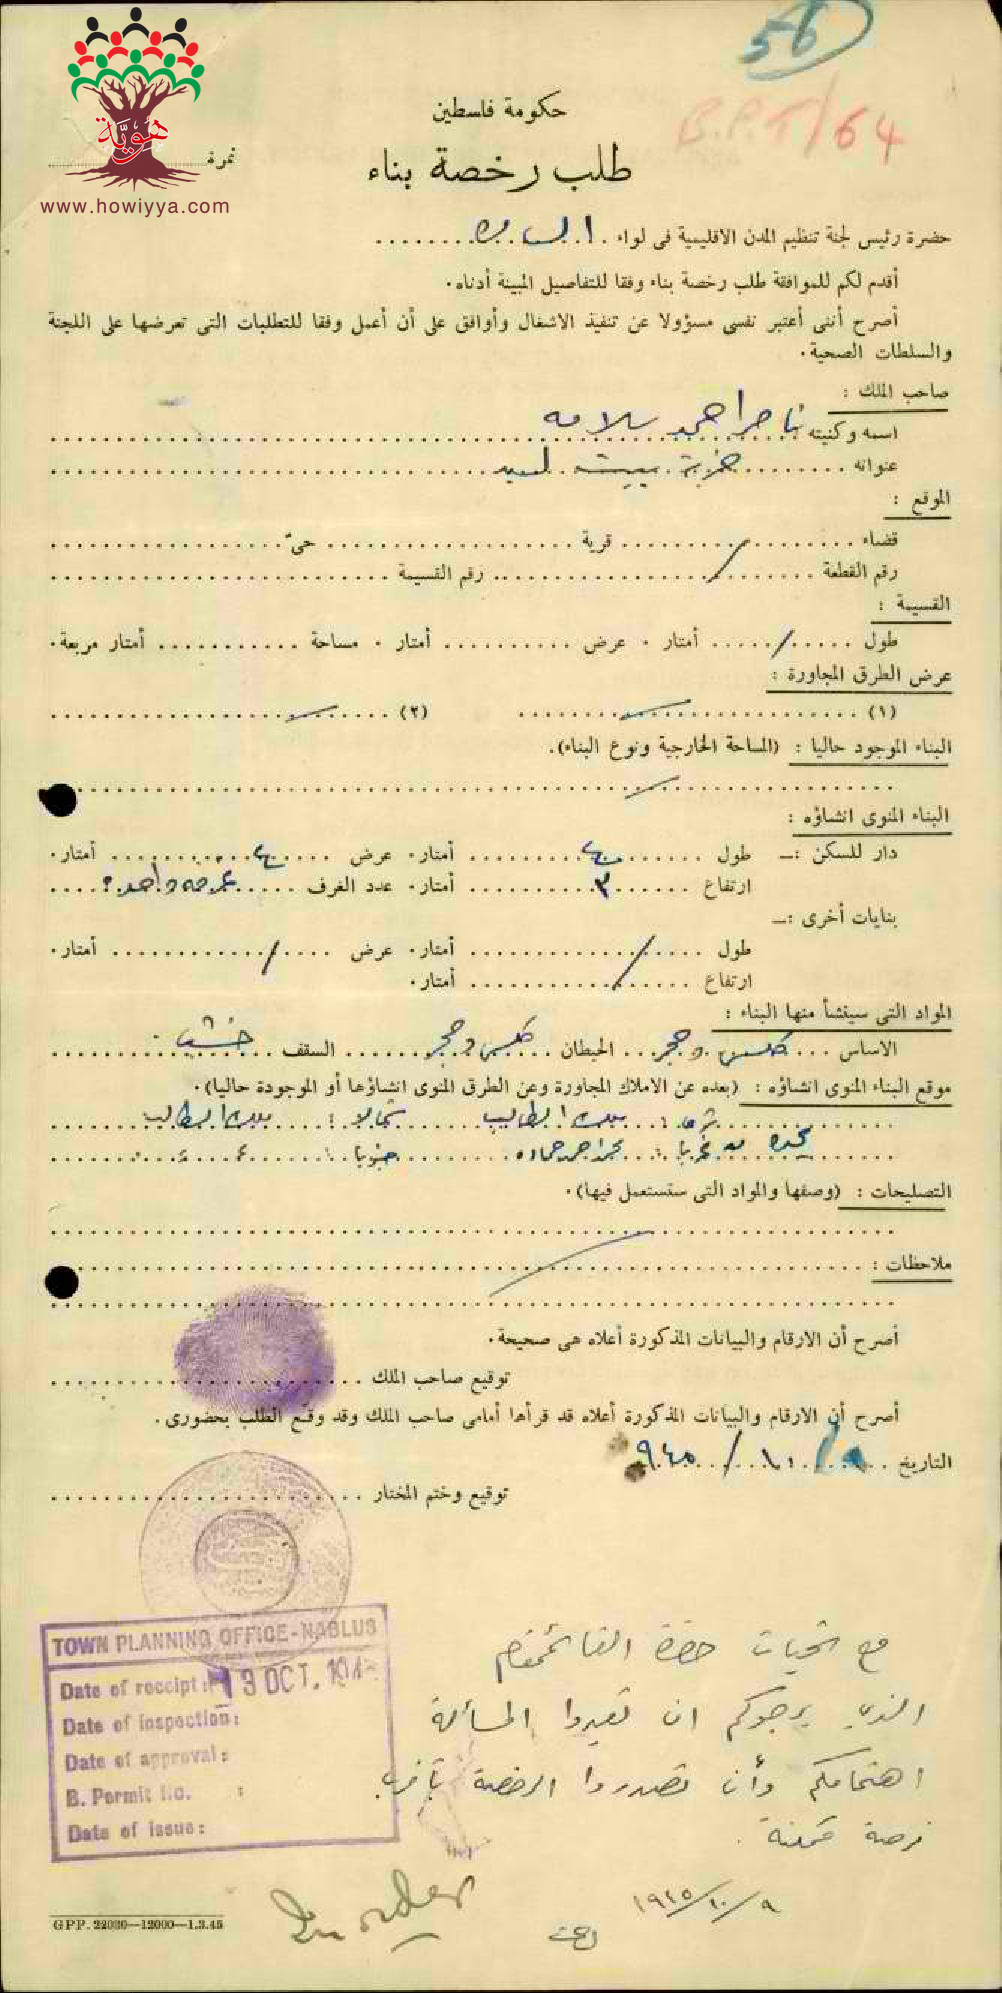 56
B.P.T/64
هُويَّة
www.howiyya.com
حكومة فلسطين
نمرة
طلب رخصة بناء
حضرة رئيس لجنة تنظيم المدن الاقليمية فى لواء السامره
أقدم لكم للموافقة طلب رخصة بناء وفقا للتفاصيل المبينة أدناه.
أصرح أننى أعتبر نفسى مسؤولا عن تنفيذ الاشغال وأوافق على أن أعمل وفقا للتطلبات التى تعرضها على اللجنة
والسلطات الصحية.
صاحب الملك :
اسمه وكنيته احمد سلامه
عنوانه خربة بيت ليد
الموقع :
قضاء قرية حىّ
رقم القطعة رقم القسيمة
القسيمة :
طول أمتار . عرض أمتار . مساحة أمتار مربعة.
عرض الطرق المجاورة :
(١) (٢)
البناء الموجود حاليا : (المساحة الخارجية ونوع البناء).
البناء المنوى انشاؤه :
دار للسكن :— طول ٤ أمتار. عرض ٤ أمتار.
ارتفاع ٣ أمتار. عدد الغرف غرفه واحده
بنايات أخرى :—
طول أمتار. عرض أمتار.
ارتفاع أمتار.
المواد التى سينشأ منها البناء :
الاساس كلس وحجر الحيطان كلس وحجر السقف خشب
موقع البناء المنوى انشاؤه : (بعده عن الاملاك المجاورة وعن الطرق المنوى انشاؤها أو الموجودة حاليا).
شرقا : ملك الطالب شمالا : ملك الطالب
يحده من غربا : جنوبا :
التصليحات : (وصفها والمواد التى ستستعمل فيها).
ملاحظات :
أصرح أن الارقام والبيانات المذكورة أعلاه هى صحيحة.
توقيع صاحب الملك
أصرح أن الارقام والبيانات المذكورة أعلاه قد قرأها أمامى صاحب الملك وقد وقع الطلب بحضورى.
التاريخ ٩/١٠/٩٤٥
توقيع وختم المختار
TOWN PLANNING OFFICE-NABLUS
Date of receipt: 13 OCT. 194
Date of inspection:
Date of approval:
B. Permit No. :
Date of issue:
مع تحيات حضرة القائمقام
الذي يرجوكم ان تعيروا المسألة
اهتمامكم وأن تصدروا الرخصة بأقرب
فرصة ممكنة .
٩/١٠/١٩٤٥
GPP. 22030—12000—1.3.45